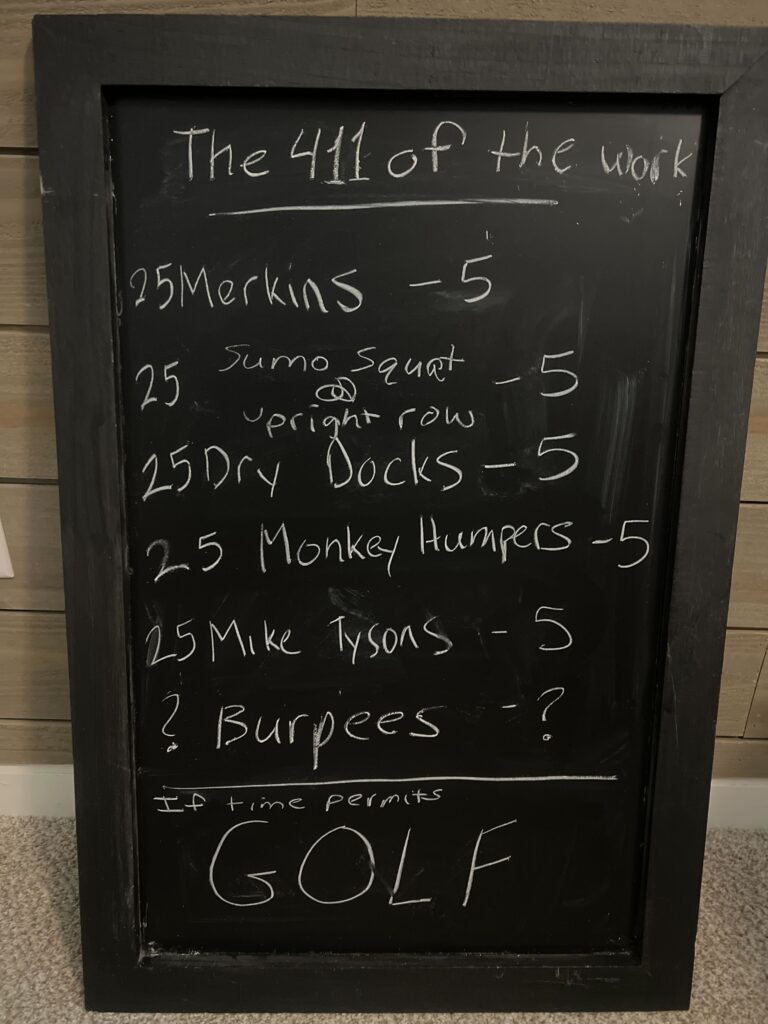 The 411 of the work
25 Merkins - 5
25 Sumo Squat - 5
upright row
25 Dry Docks - 5
25 Monkey Humpers - 5
25 Mike Tysons - 5
? Burpees - ?
If time permits
GOLF